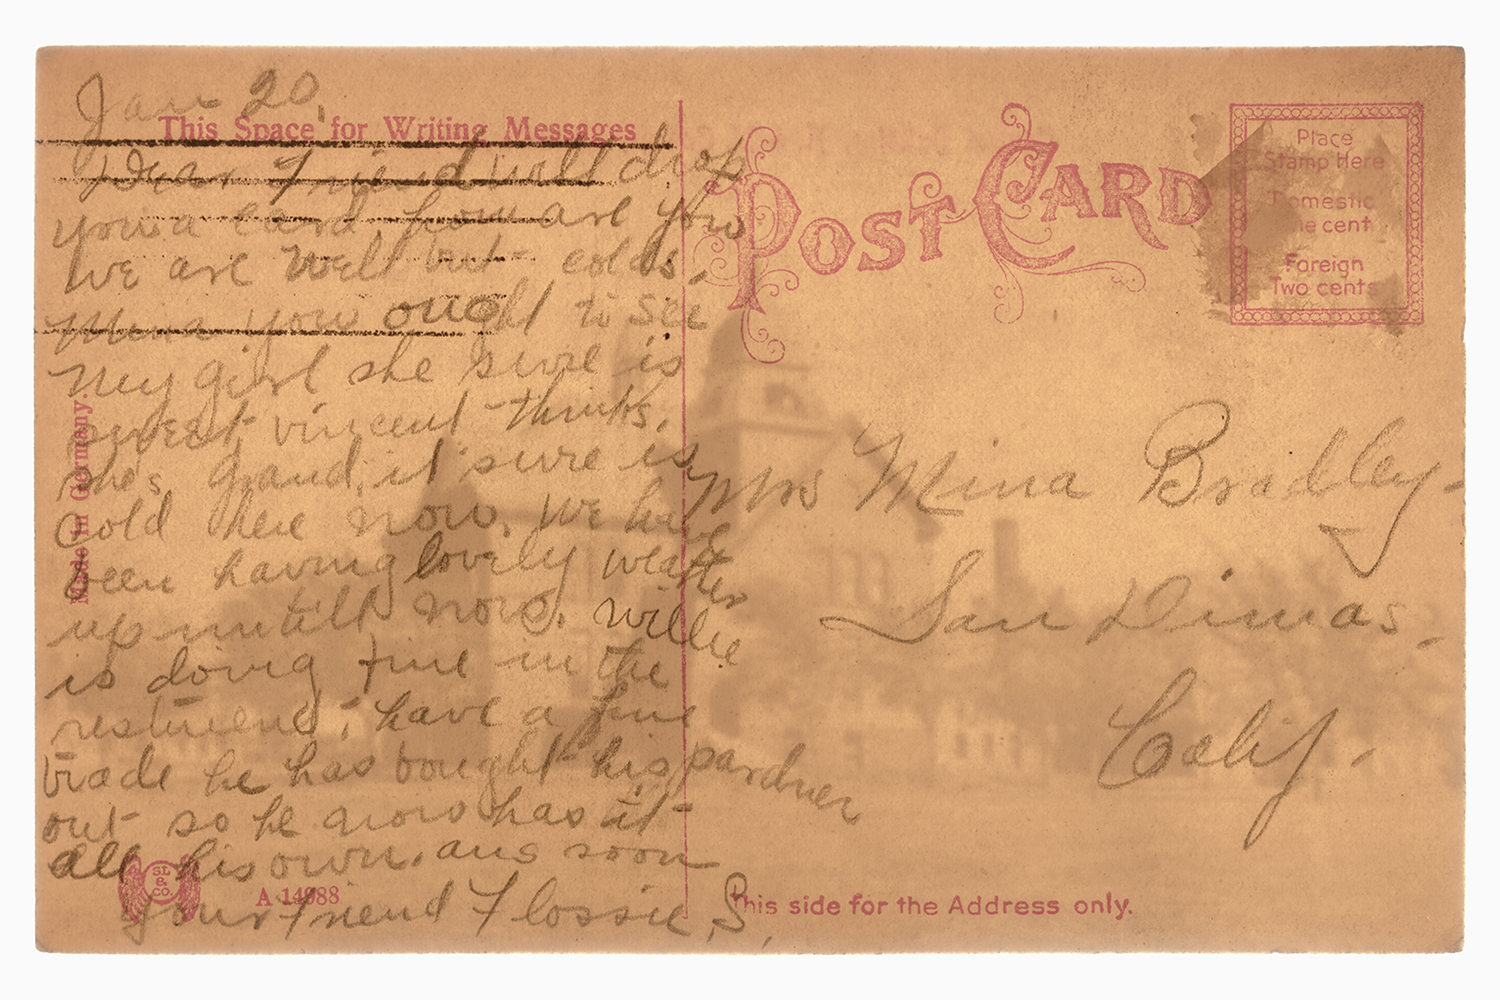 Jan 20,
This Space for Writing Messages
Dear Friend will drop
you a card how are you
we are well but colds.
Mina you ought to see
my girl she sure is
sweet, vincent thinks,
she's grand, it sure is
cold here now, We have
been having lovily weather
up untill now. Willie
is doing fine in the
have a fine
trade he has bought his pardner
out so he now has it
all his own. ans soon
your friend Flossie S,
Made in Germany.
SL & CO.
A 14988
POST CARD
Place
Stamp Here
Domestic
One cent
Foreign
Two cents
Mrs Mina Bradley
San Dimas.
Calif.
This side for the Address only.